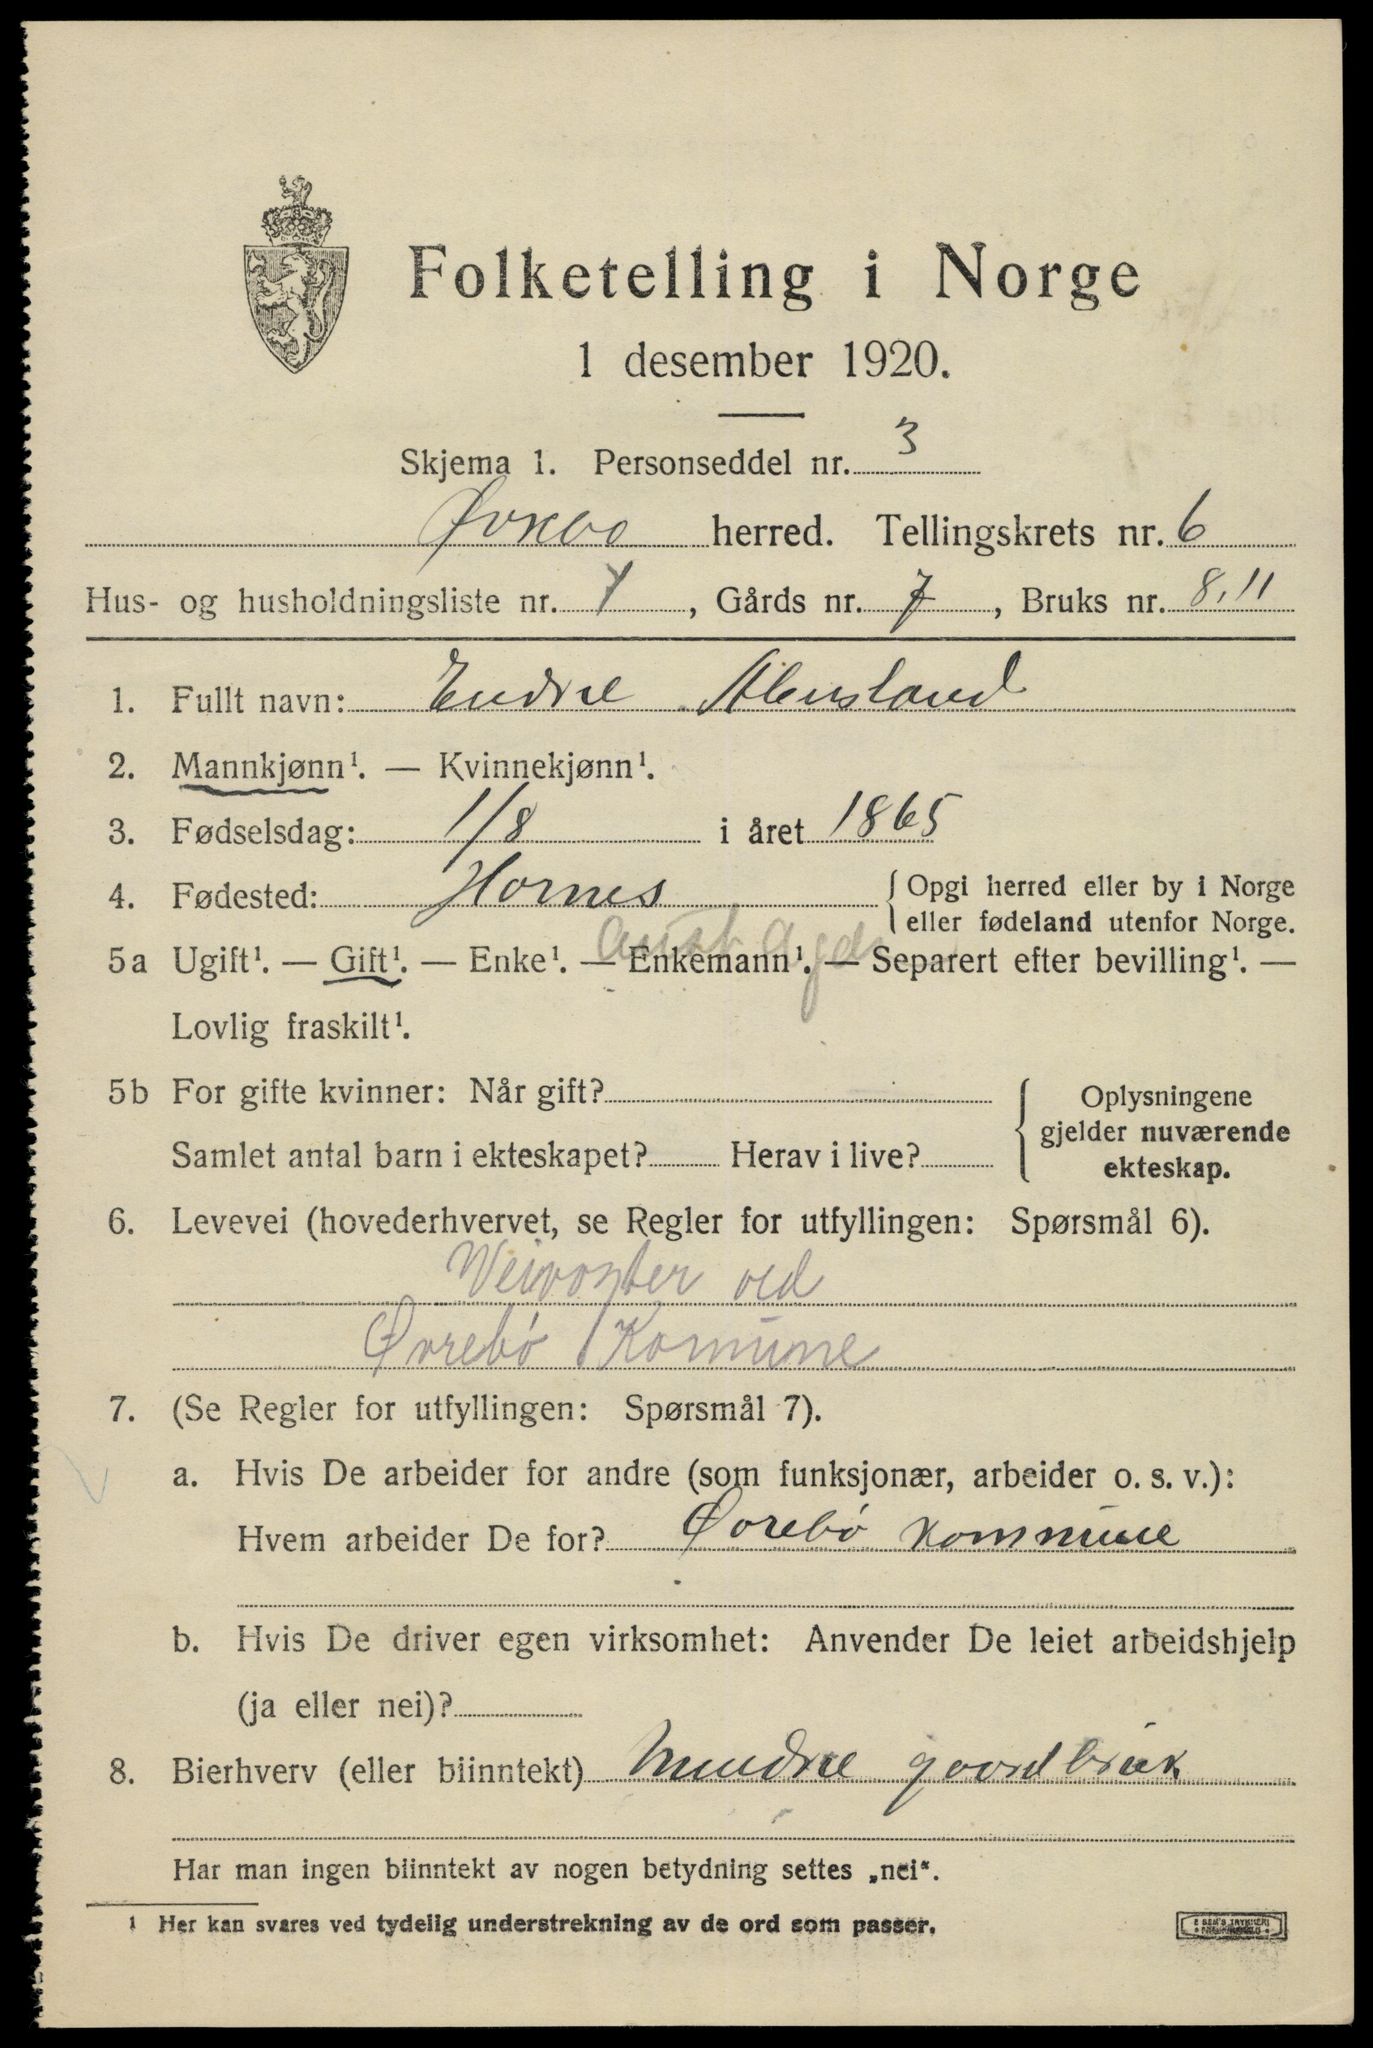 Folketelling i Norge
1 desember 1920.
Skjema 1. Personseddel nr. 3
Øvrebo herred. Tellingskrets nr. 6
Hus- og husholdningsliste nr. , Gårds nr. 7, Bruks nr. 8,11
1. Fullt navn: Endre Abusland
2. Mannkjønn¹. — Kvinnekjønn¹.
3. Fødselsdag: 1/8 i året 1865
4. Fødested: Hornes { Opgi herred eller by i Norge
eller fødeland utenfor Norge.
Aust Agder
5a Ugift¹. — Gift¹. — Enke¹. — Enkemann¹. — Separert efter bevilling¹. —
Lovlig fraskilt¹.
5b For gifte kvinner: Når gift? { Oplysningene
gjelder nuværende
Samlet antal barn i ekteskapet? Herav i live? ekteskap.
6. Levevei (hovederhvervet, se Regler for utfyllingen: Spørsmål 6).
Veivogter ved
Øvrebö Komune
7. (Se Regler for utfyllingen: Spørsmål 7).
a. Hvis De arbeider for andre (som funksjonær, arbeider o. s. v.):
Hvem arbeider De for? Øvrebö kommune
b. Hvis De driver egen virksomhet: Anvender De leiet arbeidshjelp
(ja eller nei)?
8. Bierhverv (eller biinntekt) Mindre gaardbruk
Har man ingen biinntekt av nogen betydning settes „nei“.
¹ Her kan svares ved tydelig understrekning av de ord som passer.